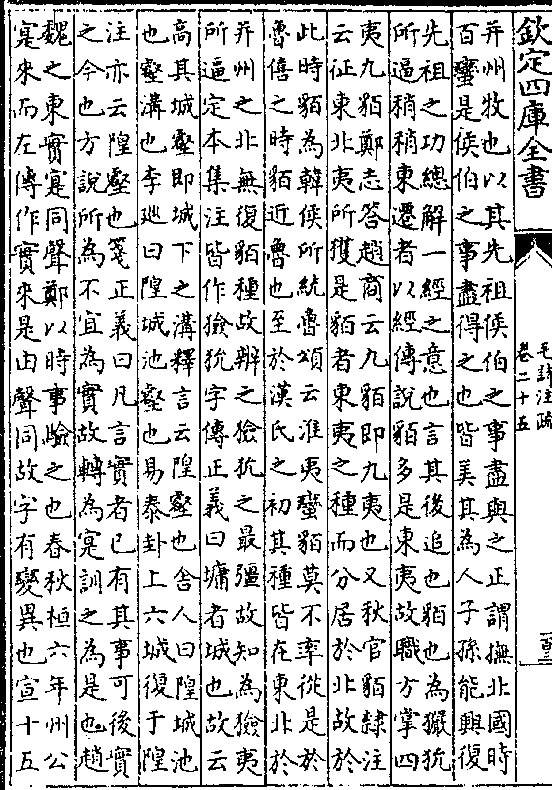 欽定四庫全書
毛詩注疏
卷二十五
并州牧也以其先祖侯伯之事盡與之正謂撫北國時
百蠻是侯伯之事盡得之也皆美其為人子孫能興復
先祖之功總解一經之意也言其後追也貊也為玁狁
所逼稍稍東遷者以經傳說貊多是東夷故職方掌四
夷九貊鄭志答趙商云九貊即九夷也又秋官貊隸注
云征東北夷所獲是貊者東夷之種而分居於北故於
此時貊為韓侯所統魯頌云淮夷蠻貊莫不率從是於
魯僖之時貊近魯也至於漢氏之初其種皆在東北於
并州之北無復貊種故辨之獫狁之最彊故知為獫夷
所逼定本集注皆作獫狁字傳正義曰墉者城也故云
高其城壑即城下之溝釋言云隍壑也舍人曰隍城池
也壑溝也李廵曰隍城池壑也易泰卦上六城復于隍
注亦云隍壑也箋正義曰凡言實者已有其事可後實
之今也方說所為不宜為實故轉為寔訓之為是也趙
魏之東實寔同聲鄭以時事驗之也春秋桓六年州公
寔來而左傳作實來是由聲同故字有變異也宣十五